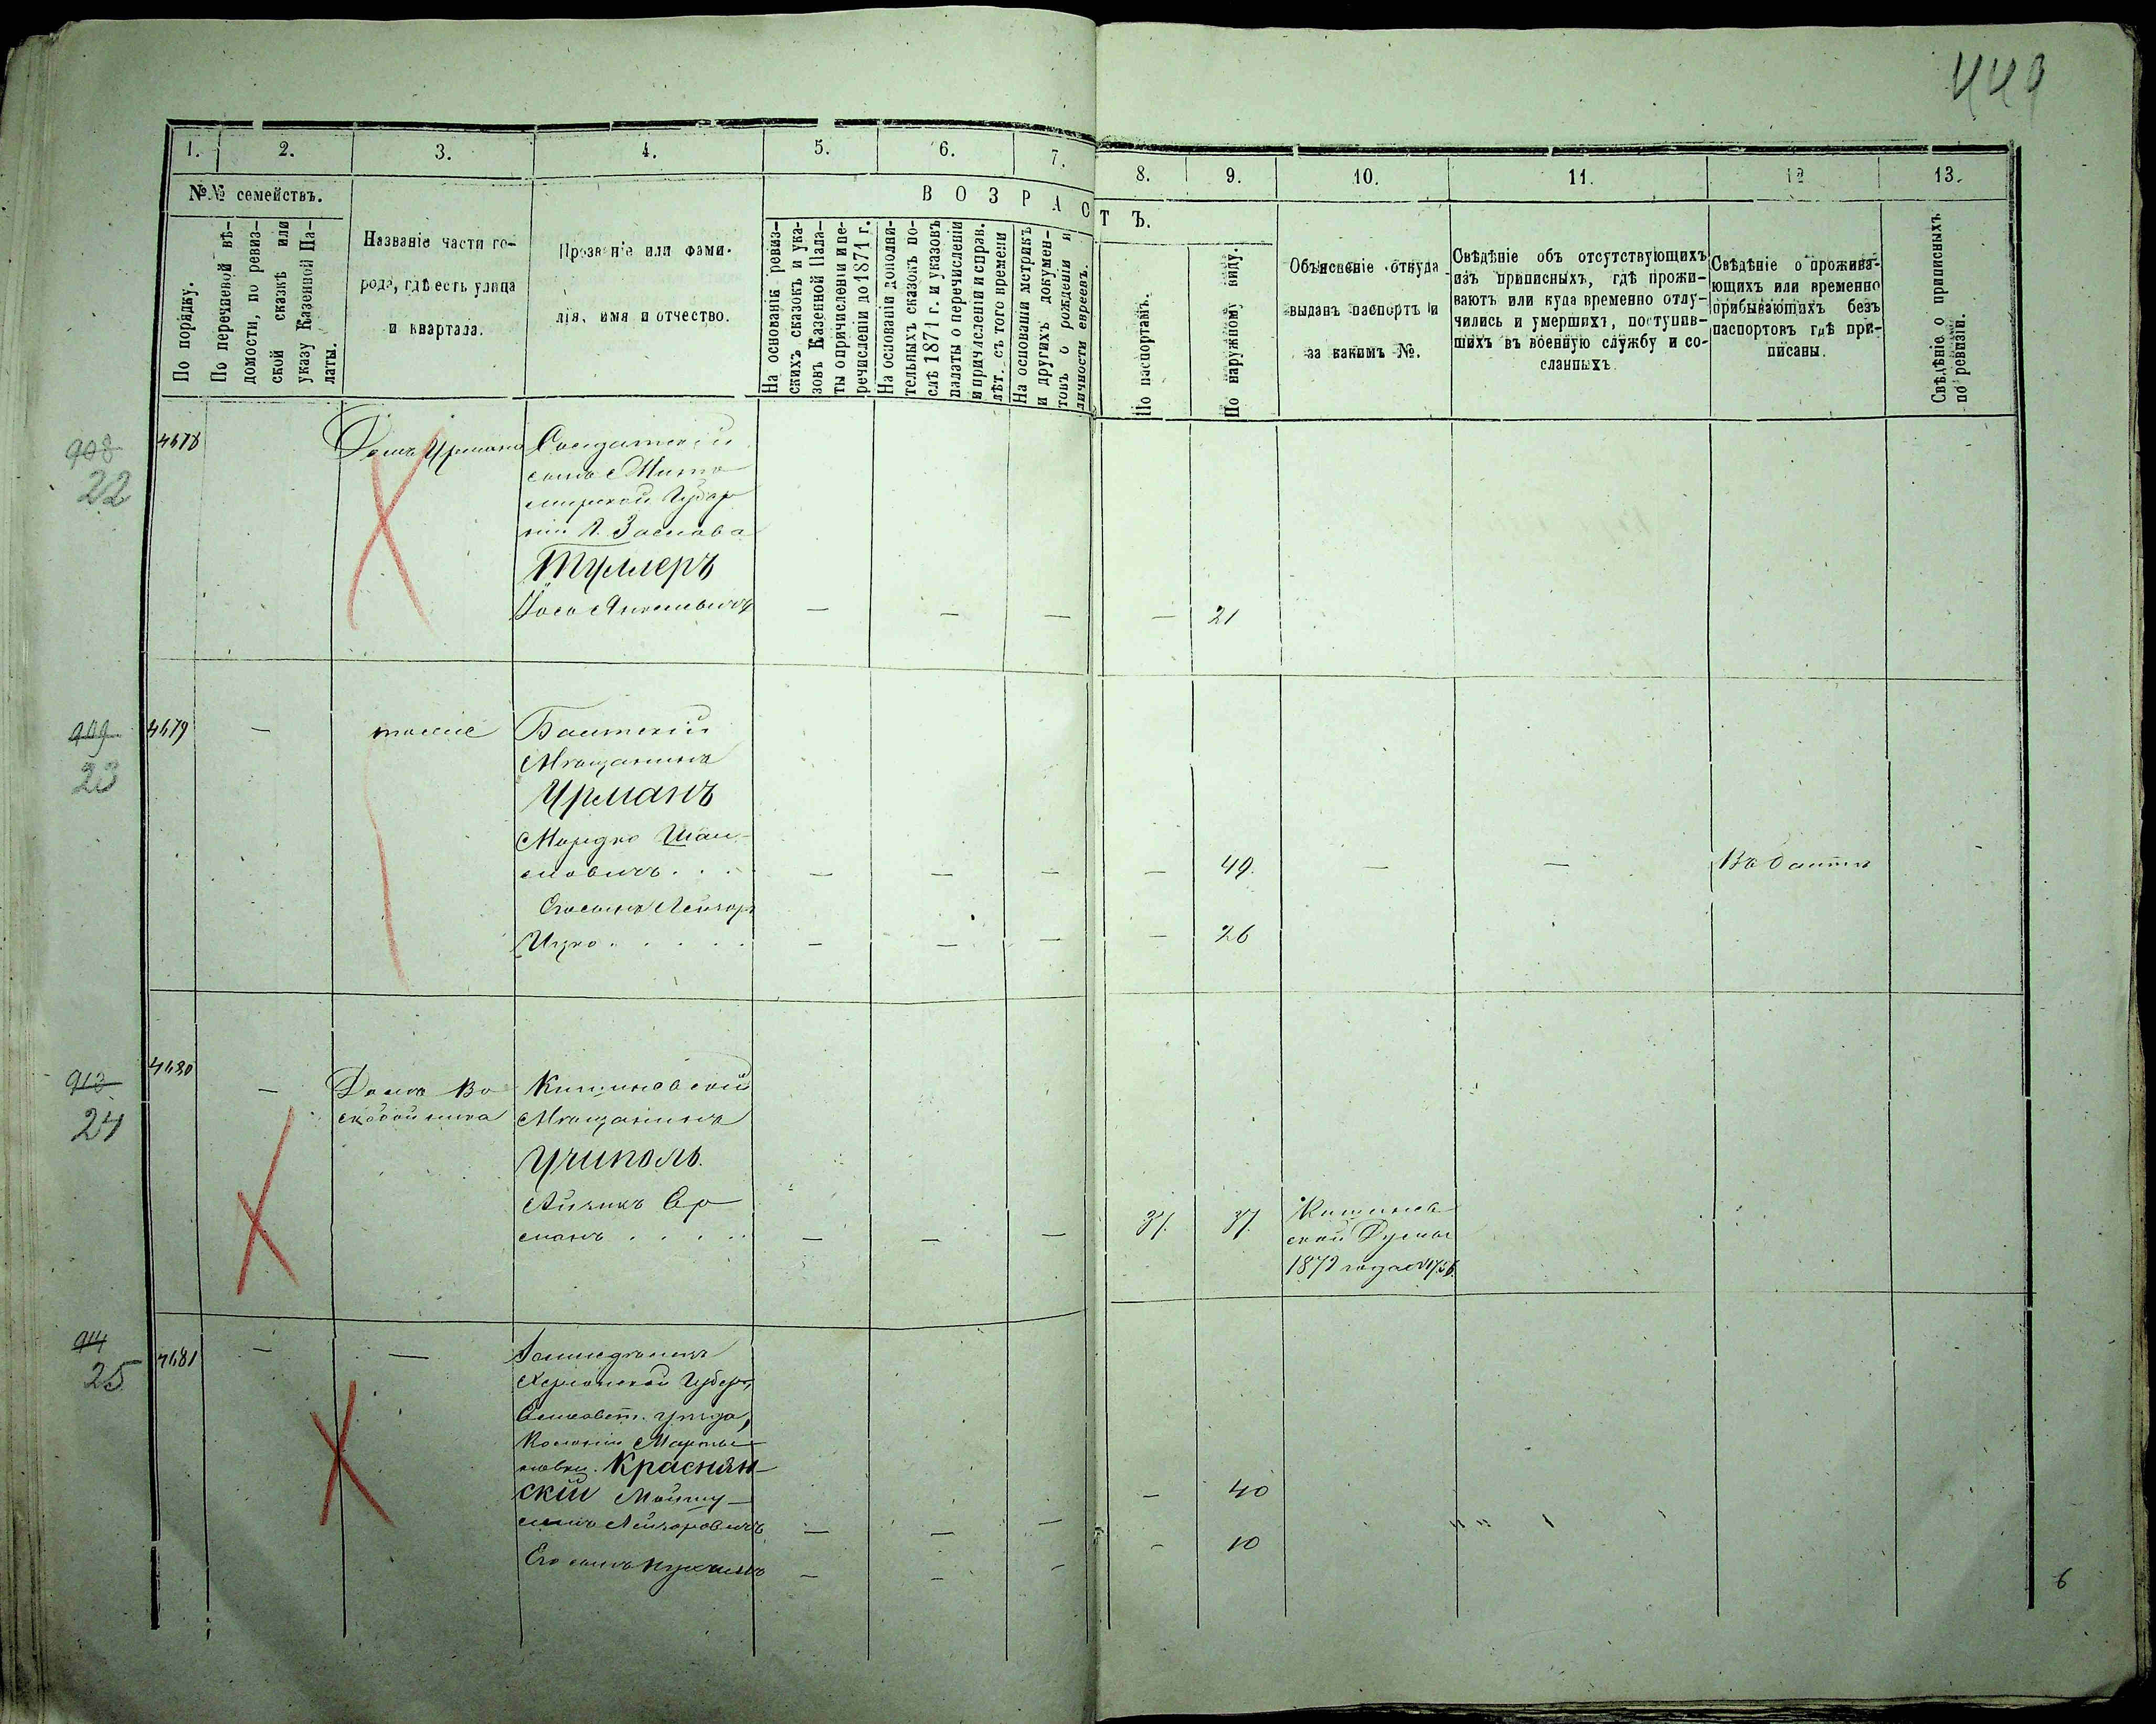 449
1.
2.
3.
4.
5.
6.
7.
8.
9.
10.
11.
12
13.
№№ семействъ.
По порядку.
По перечневой вѣ-
домости, по ревиз-
ской сказкѣ или
указу Казенной Па-
латы.
Названіе части го-
рода, гдѣ есть улица
и квартала.
Прозваніе или фами-
лія, имя и отчество.
ВОЗРАСТЪ.
На основаніи ревиз-
скихъ сказокъ и ука-
зовъ Казенной Пала-
ты о причисленіи и пе-
речисленіи до 1871 г.
На основаніи дополни-
тельныхъ сказокъ по-
слѣ 1871 г. и указовъ
палаты о перечисленіи
и причисленіи и справ.
лѣт. съ того времени
На основаніи метрикъ
и другихъ докумен-
товъ о рожденіи и
личности евреевъ.
По паспортамъ.
По наружному виду.
Объясненіе откуда
выданъ паспортъ и
за какимъ №.
Свѣдѣніе объ отсутствующихъ
изъ приписныхъ, гдѣ прожи-
ваютъ или куда временно отлу-
чились и умершихъ, поступив-
шихъ въ военную службу и со-
сланныхъ.
Свѣдѣніе о прожива-
ющихъ или временно
прибывающихъ безъ
паспортовъ гдѣ при-
писаны.
Свѣдѣніе о приписныхъ
по ревизіи.
908
22
4478
Домъ Урмана
Солдатскій
сынъ Жито
мирской Губер
ніи г. Заслова
Туллеръ
– – – – 21
909
23
4479
–
тоже
Балтскій
Мѣщанинъ
Урманъ
Мордко Шам-
сновичъ . . .
– – – – 49. – – Въ Балтѣ
Ицко . . . . .
– – – – 26
24
4480
–
Домъ Во
скобойника
Кишиневскій
Мѣщанинъ
Учиполь.
Айзикъ Ср
– – – 37. 37
Кишинев
ской Думы
1872 года
25
4481
– –
Херсонской Губер.
Елисавет. уѣзда,
Колоніи Марты
новки. Краснян-
скій
Лейзоровичъ
– – – – 40
Его сынъ
– – – – 10
6